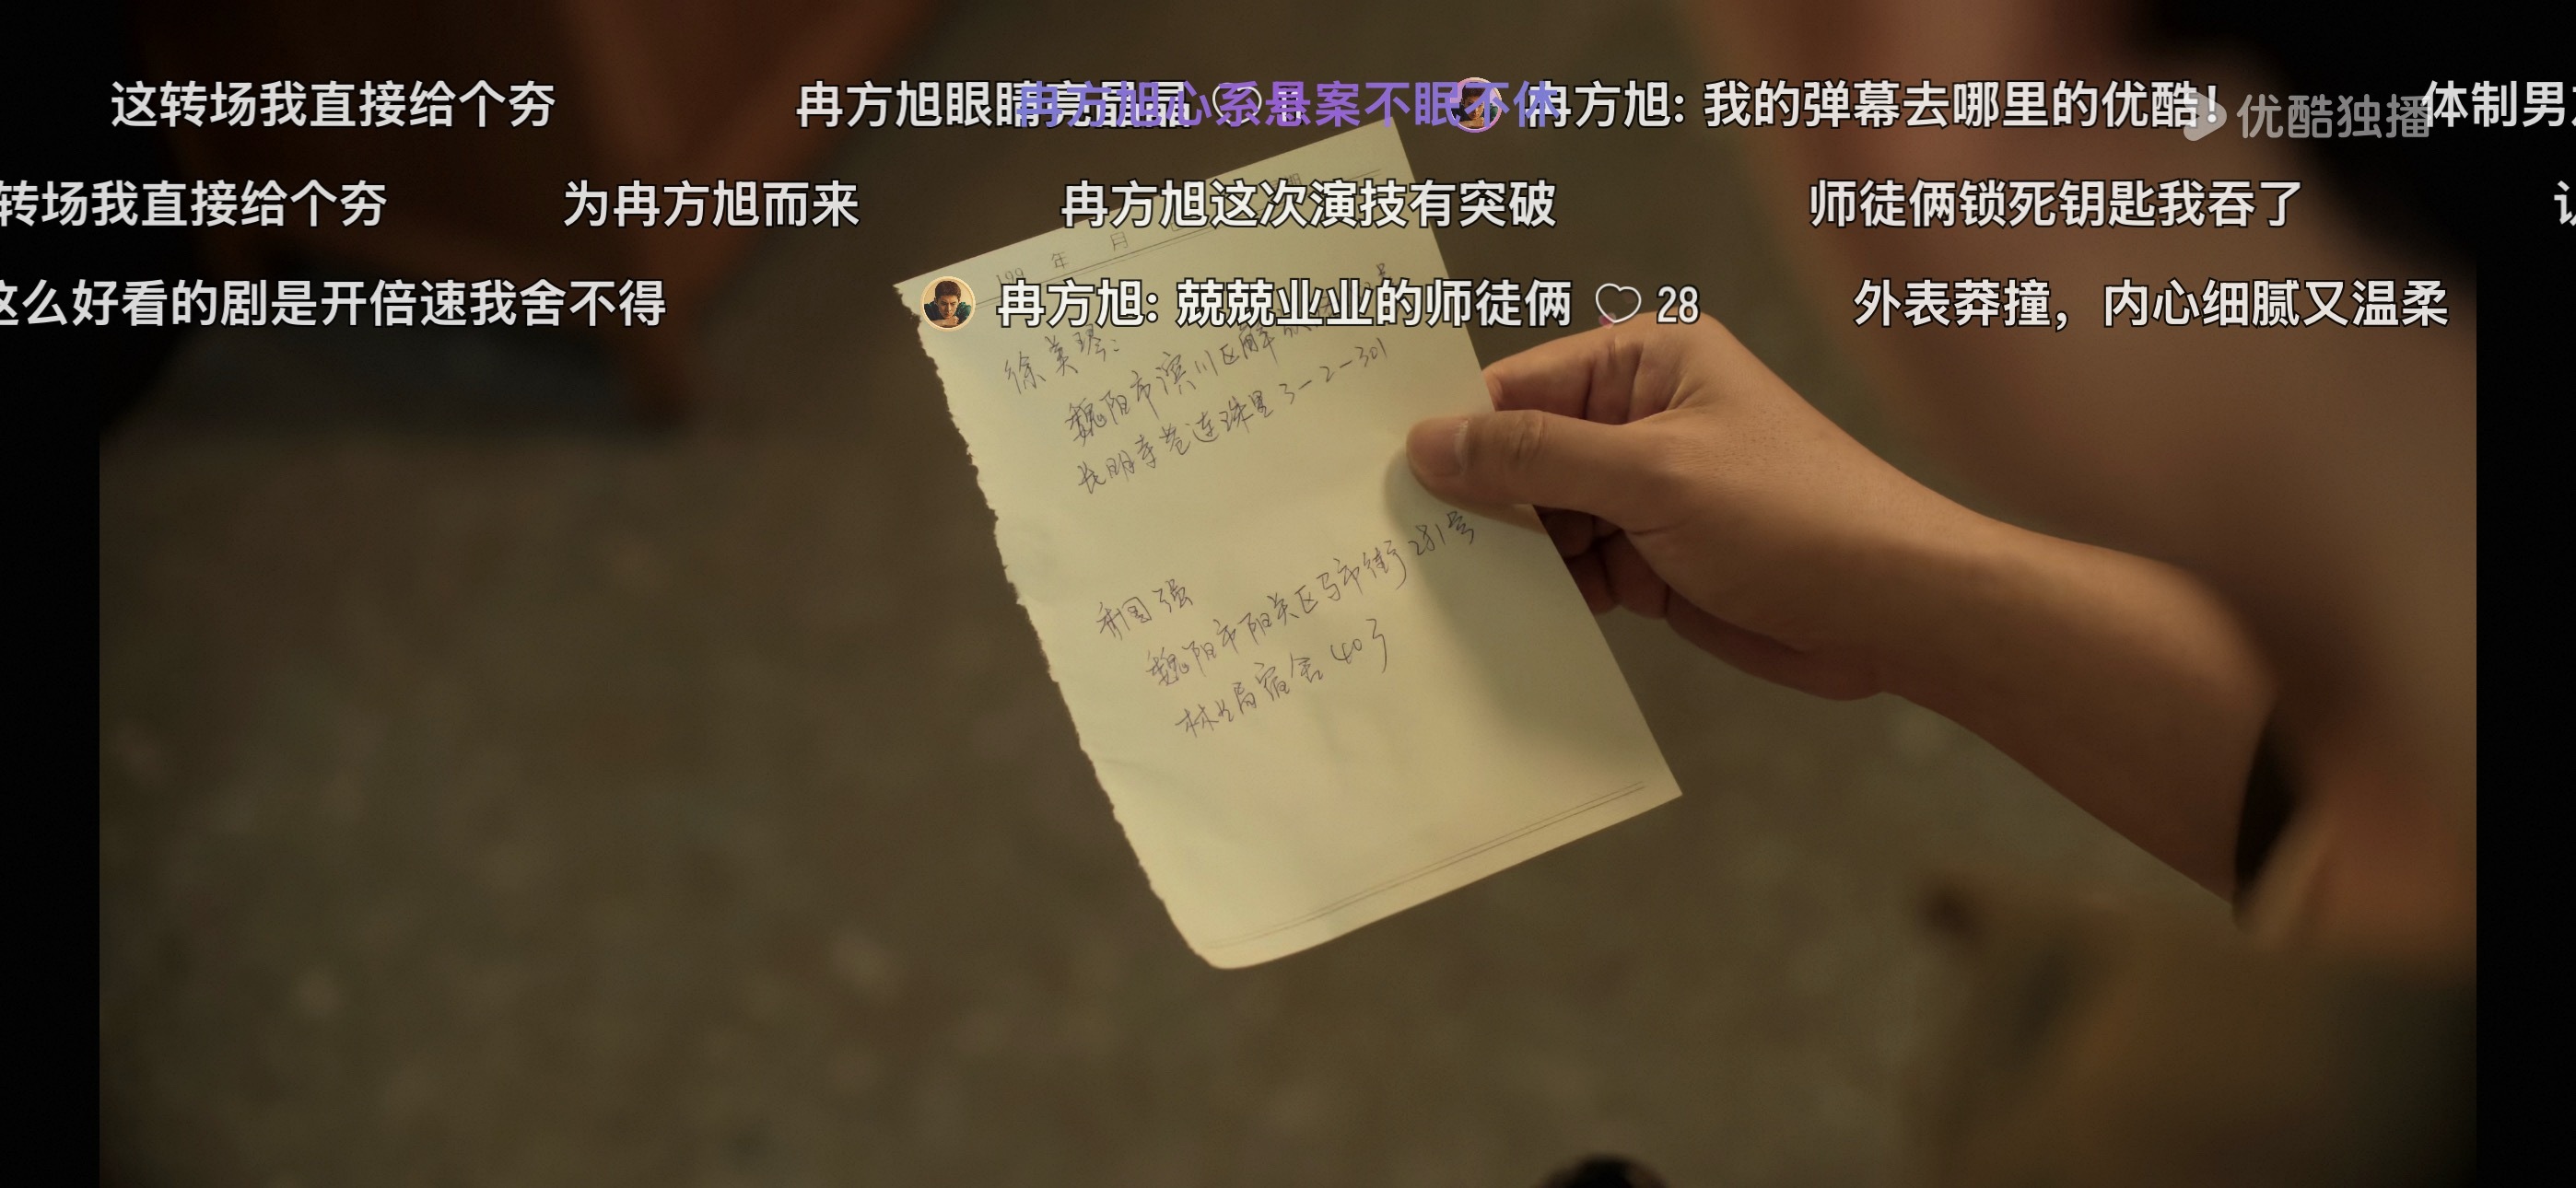 这转场我直接给个夯
冉方旭眼睛亮晶晶
冉方旭心系悬案不眠不休
冉方旭: 我的弹幕去哪里的优酷!
优酷独播
体制男
转场我直接给个夯
为冉方旭而来
冉方旭这次演技有突破
师徒俩锁死钥匙我吞了
这么好看的剧是开倍速我舍不得
冉方旭: 兢兢业业的师徒俩 28
外表莽撞，内心细腻又温柔
199 年 月
徐美琴:
魏阳市滨川区解放
长明李巷连珠里3-2-301
国强
魏阳市阳关区马市街281号
林业局宿舍40号